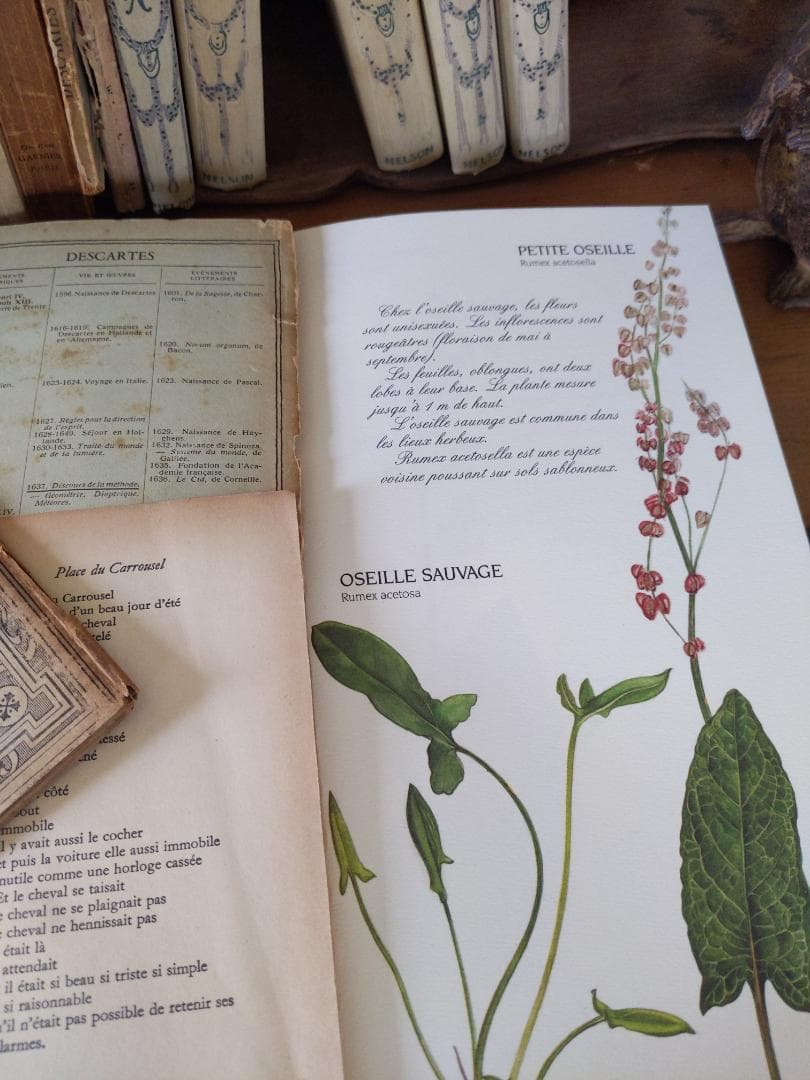 GARNIER
NELSON
NELSON
NELSON
NELSON
DESCARTES
VIE ET ŒUVRES
ÉVÉNEMENTS
LITTÉRAIRES
1596. Naissance de Descartes
1601. De la Sagesse, de Char-
ron.
1616-1619. Campagnes de
Descartes en Hollande et
en Allemagne.
1620. Novum organum, de
Bacon.
1623-1624. Voyage en Italie.
1623. Naissance de Pascal.
1627. Règles pour la direction
de l'esprit.
1628-1649. Séjour en Hol-
lande.
1630-1633. Traité du monde
et de la lumière.
1629. Naissance de Huy-
ghens.
1632. Naissance de Spinoza.
— Système du monde, de
Galilée.
1635. Fondation de l'Aca-
démie française.
1637. Discours de la méthode.
— Géométrie, Dioptrique,
Météores.
1636. Le Cid, de Corneille.
Place du Carrousel
Carrousel
d'un beau jour d'été
cheval
telé
essé
né
côté
out
mmobile
l y avait aussi le cocher
et puis la voiture elle aussi immobile
nutile comme une horloge cassée
Et le cheval se taisait
e cheval ne se plaignait pas
e cheval ne hennissait pas
était là
attendait
il était si beau si triste si simple
si raisonnable
u'il n'était pas possible de retenir ses
larmes.
PETITE OSEILLE
Rumex acetosella
Chez l'oseille sauvage, les fleurs
sont unisexuées. Les inflorescences sont
rougeâtres (floraison de mai à
septembre).
Les feuilles, oblongues, ont deux
lobes à leur base. La plante mesure
jusqu'à 1 m de haut.
L'oseille sauvage est commune dans
les lieux herbeux.
Rumex acetosella est une espèce
voisine poussant sur sols sablonneux.
OSEILLE SAUVAGE
Rumex acetosa